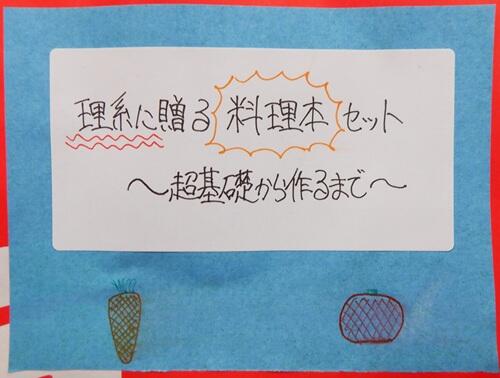 理系に贈る料理本セット
〜超基礎から作るまで〜